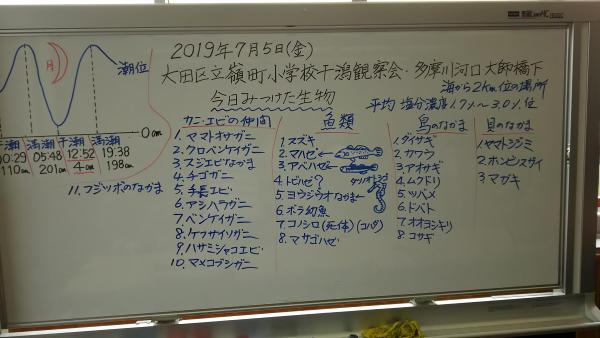 2019年7月5日(金)
大田区立嶺町小学校干潟観察会・多摩川河口大師橋下
海から2km位の場所
今日みつけた生物
平均 塩分濃度1.7%～3.0%位
月
潮位
0cm
干潮 満潮 干潮 満潮
00:29 05:48 12:52 19:38
110cm 201cm 4cm 198cm
カニ・エビの仲間
1.ヤマトオサガニ
2.クロベンケイガニ
3.スジエビなかま
4.チゴガニ
5.手長エビ
6.アシハラガニ
7.ベンケイガニ
8.ケフサイソガニ
9.ハサミシャコエビ
10.マメコブシガニ
11.フジツボのなかま
魚類
1.スズキ
2.マハゼ
3.アベハゼ
4.トビハゼ?
5.ヨウジウオなかま
6.ボラ幼魚
7.コノシロ(死体)(コハダ)
8.マサゴハゼ
鳥のなかま
1.ダイサギ
2.カワウ
3.アオサギ
4.ムクドリ
5.ツバメ
6.ドバト
7.オオヨシキリ
8.コサギ
貝のなかま
1.ヤマトシジミ
2.ホンビノスガイ
3.マガキ